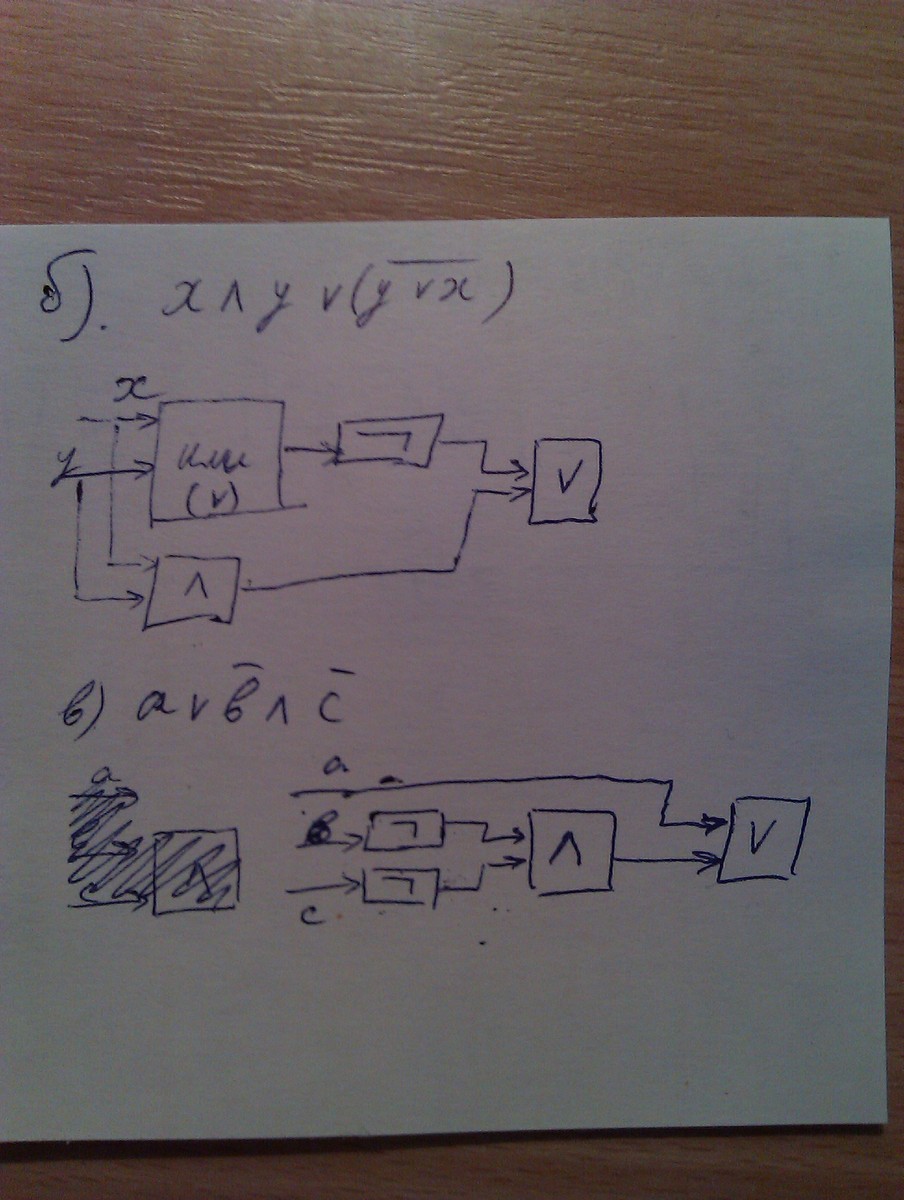 б). x ∧ y ∨ (y̅ ̅∨̅ ̅x̅)
x
y
или
(∨)
¬
∨
∧
в) a ∨ b̅ ∧ c̅
a
a
в
¬
∧
∨
c
¬